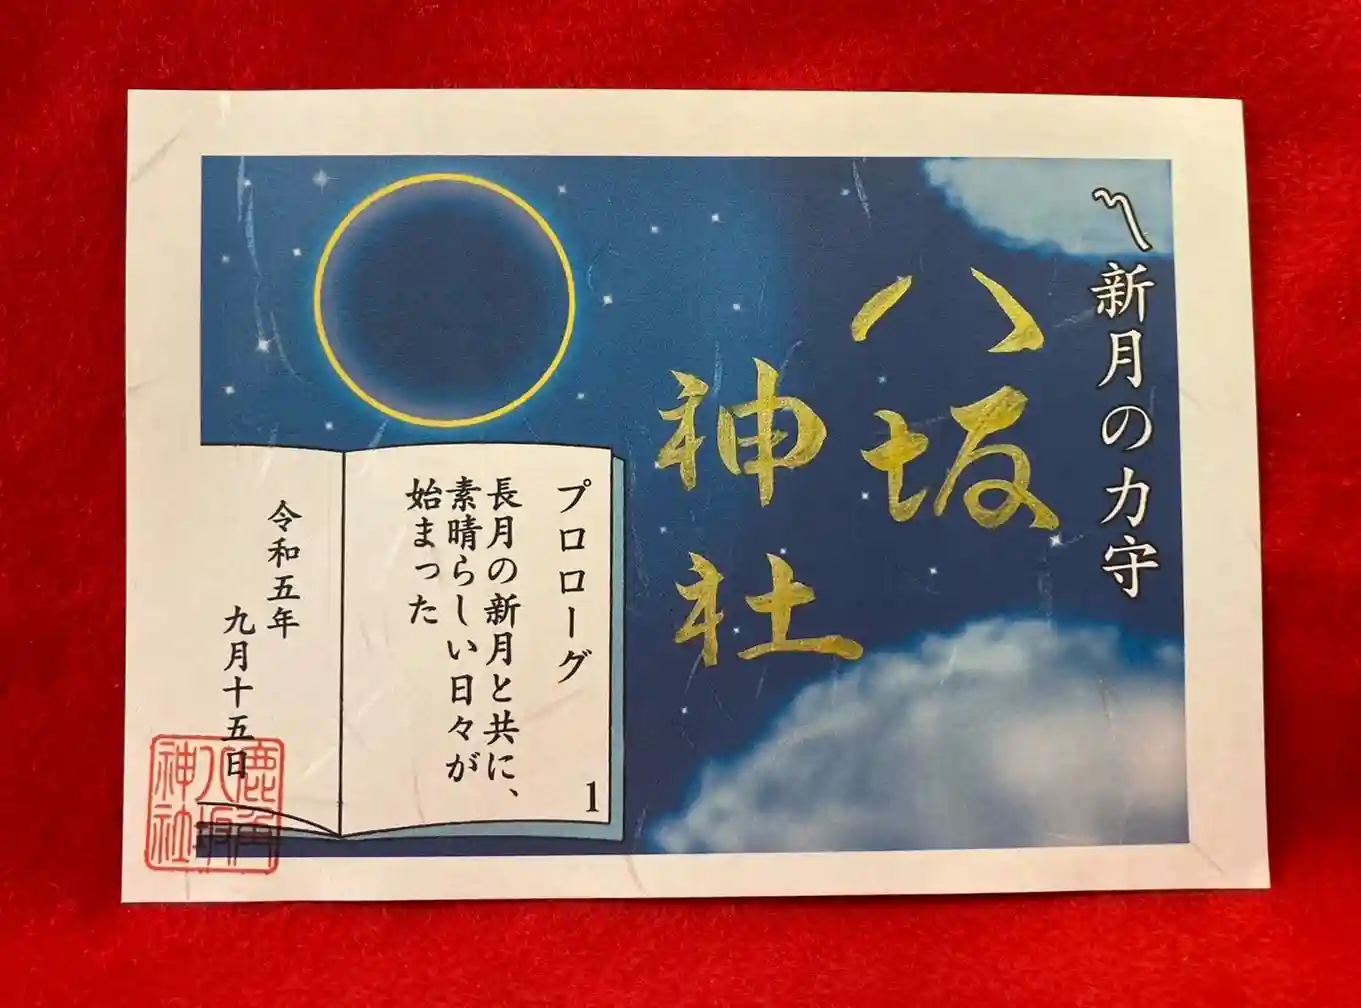 新月の力守
八坂
神社
プロローグ 1
長月の新月と共に、
素晴らしい日々が
始まった
令和五年
九月十五日
鹿角
八坂
神社